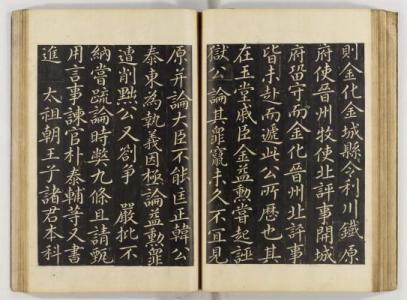 則金化金城縣令利川鐵原
府使晉州牧使北評事開城
府留守而金化晉州北評事
皆未赴而遞此公所歷也其
在玉堂戚臣金益勳嘗起誣
獄公論其罪竄未久不宜見
原幷論大臣不能匡正韓公
泰東為執義因極論益勳罪
遭削黜公又劄爭 嚴批不
納嘗疏論時弊九條且請甄
用言事諫官朴泰輔等又書
進 太祖朝王子諸君本科